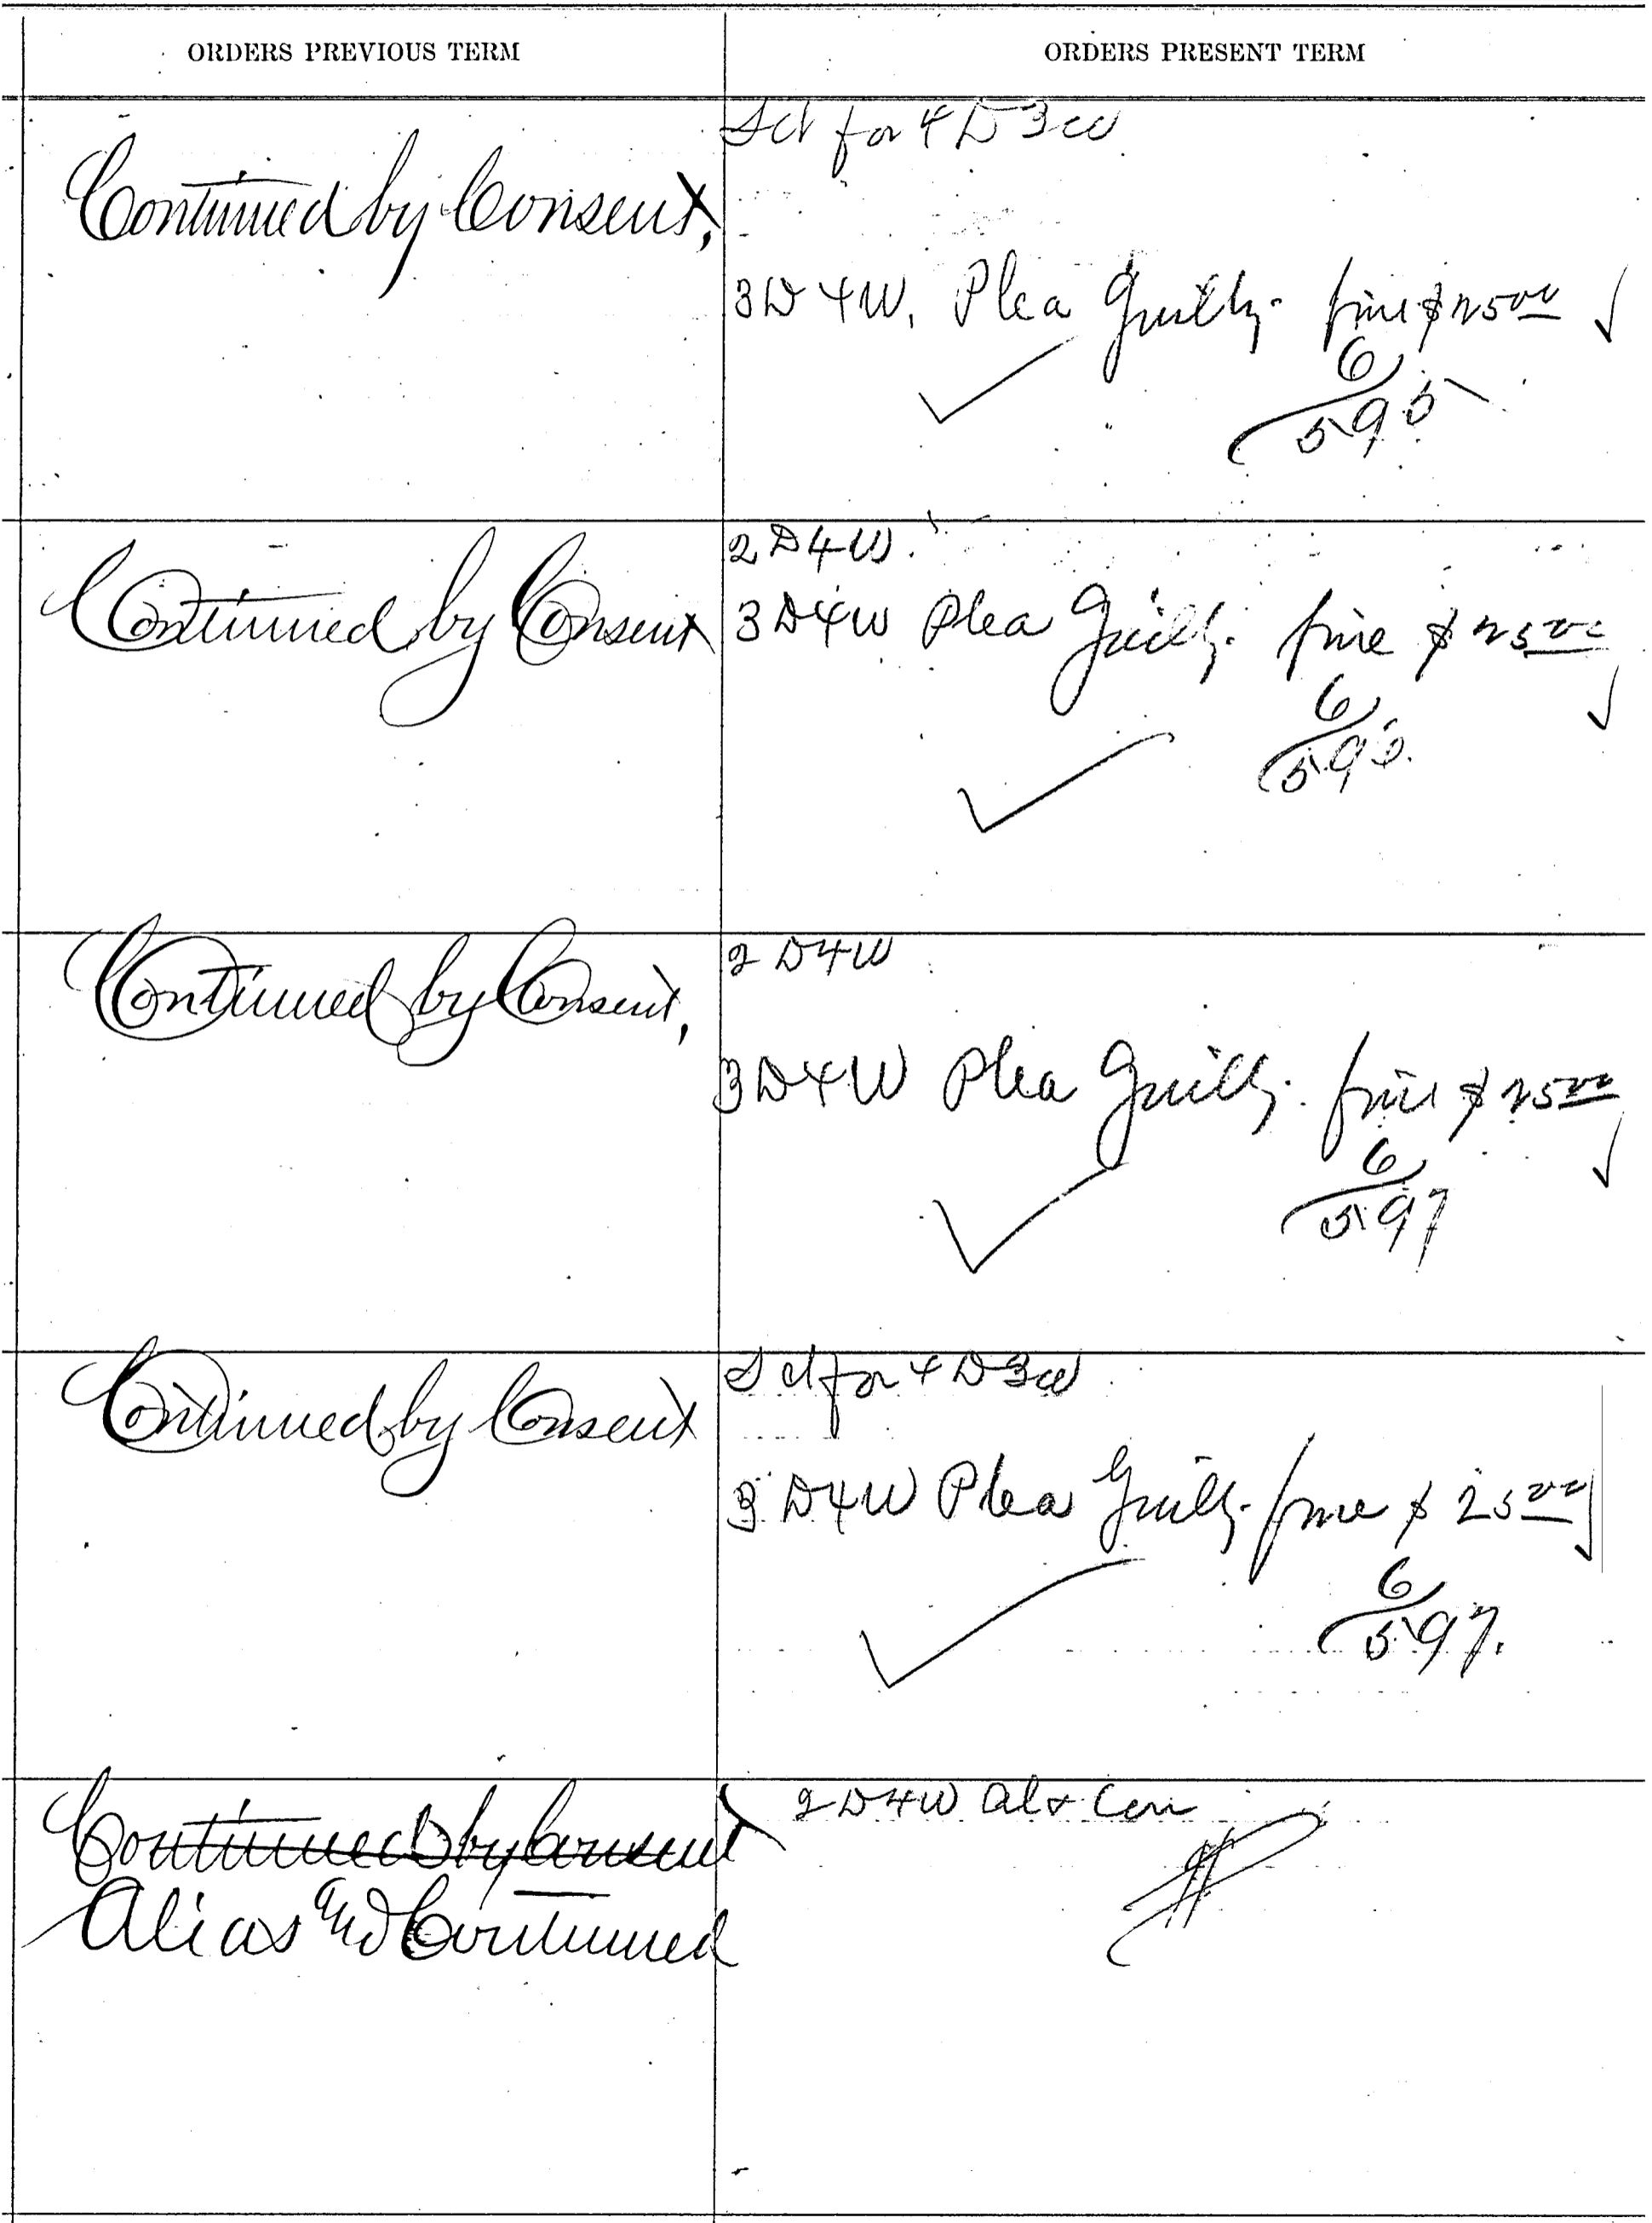 ORDERS PREVIOUS TERM
ORDERS PRESENT TERM
Continued by Consent,
Set for 4 D 3 W
3 D 4 W. Plea Guilty. fine $ 25 00
6
595
Continued by Consent
2 D 4 W.
3 D 4 W Plea Guilty. fine $ 25 00
6
Continued by Consent,
2 D 4 W
3 D 4 W Plea Guilty. fine $ 25 00
6
597
Continued by Consent
Set for 4 D 3 W
3 D 4 W Plea Guilty. fine $ 25 00
6
597.
Continued by Consent
Alias and Continued
2 D 4 W al & Con